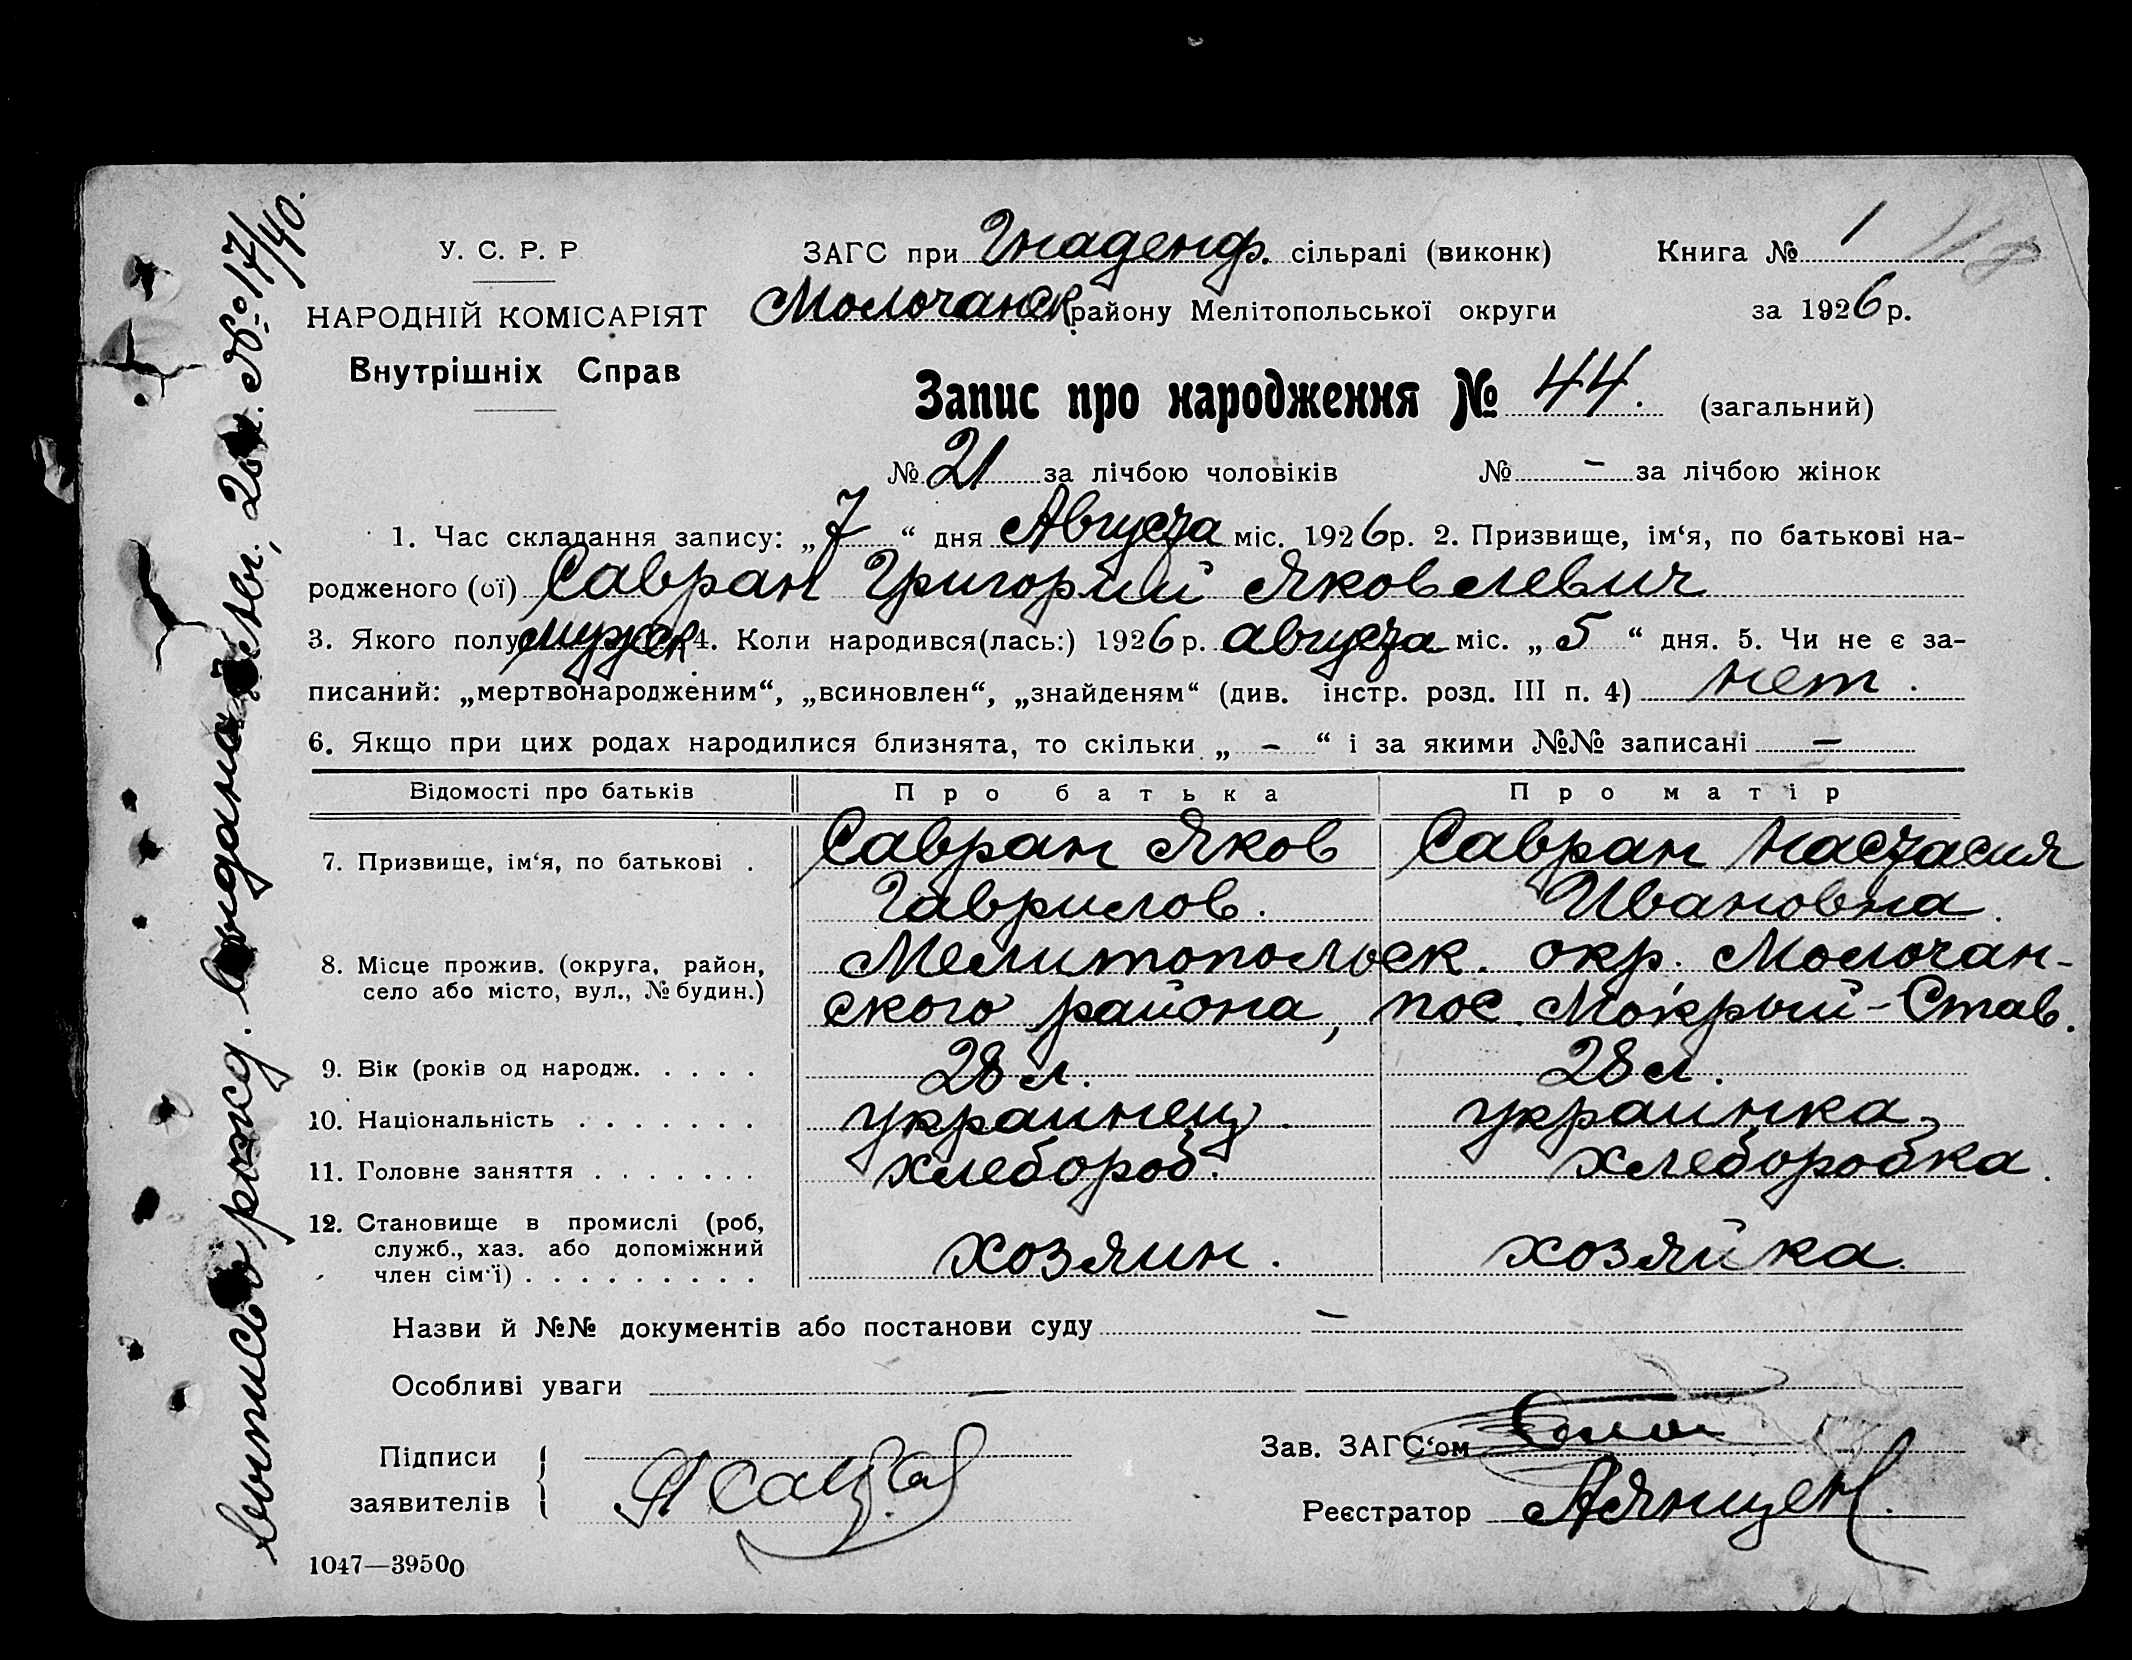 У. С. Р. Р
НАРОДНІЙ КОМІСАРІЯТ
Внутрішніх Справ
ЗАГС при Гнаденф. сільраді (виконк)
Книга № 1
118
Молочанск району Мелітопольської округи
за 1926 р.
Запис про народження № 44. (загальний)
№ 21 за лічбою чоловіків № – за лічбою жінок
1. Час складання запису: „7“ дня Августа міс. 1926 р. 2. Призвище, ім‘я, по батькові на-
родженого (ої) Савран Григорий Яковлевич
3. Якого полу мужск 4. Коли народився(лась:) 1926 р. августа міс. „5“ дня. 5. Чи не є за-
писаний: „мертвонародженим“, „всиновлен“, „знайденям“ (див. інстр. розд. III п. 4) нет.
6. Якщо при цих родах народилися близнята, то скільки „–“ і за якими №№ записані –
Відомості про батьків Про батька Про матір
7. Призвище, ім‘я, по батькові . Савран Яков Савран Настасия
Гаврилов. Ивановна.
8. Місце прожив. (округа, район, Мелитопольск. окр. Молочан-
село або місто, вул., № будин.) ского района, пос. Мокрый-Став.
9. Вік (років од народж. . . . . 28 л. 28 л.
10. Національність . . . . . . . украинец. украинка
11. Головне заняття . . . . . . . хлебороб. хлеборобка.
12. Становище в промислі (роб,
служб., хаз. або допоміжний хозяин. хозяйка.
член сім‘ї) . . . . . . . . .
Назви й №№ документів або постанови суду –
Особливі уваги –
Підписи
заявителів
Зав. ЗАГС‘ом
Реєстратор
1047—39500
выпись рожд. выдана 2. № 17/40.